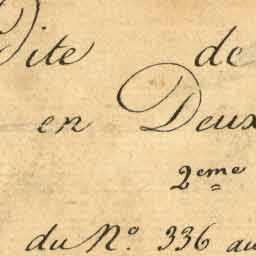 Dite de
en Deux
2eme
du No. 336 au